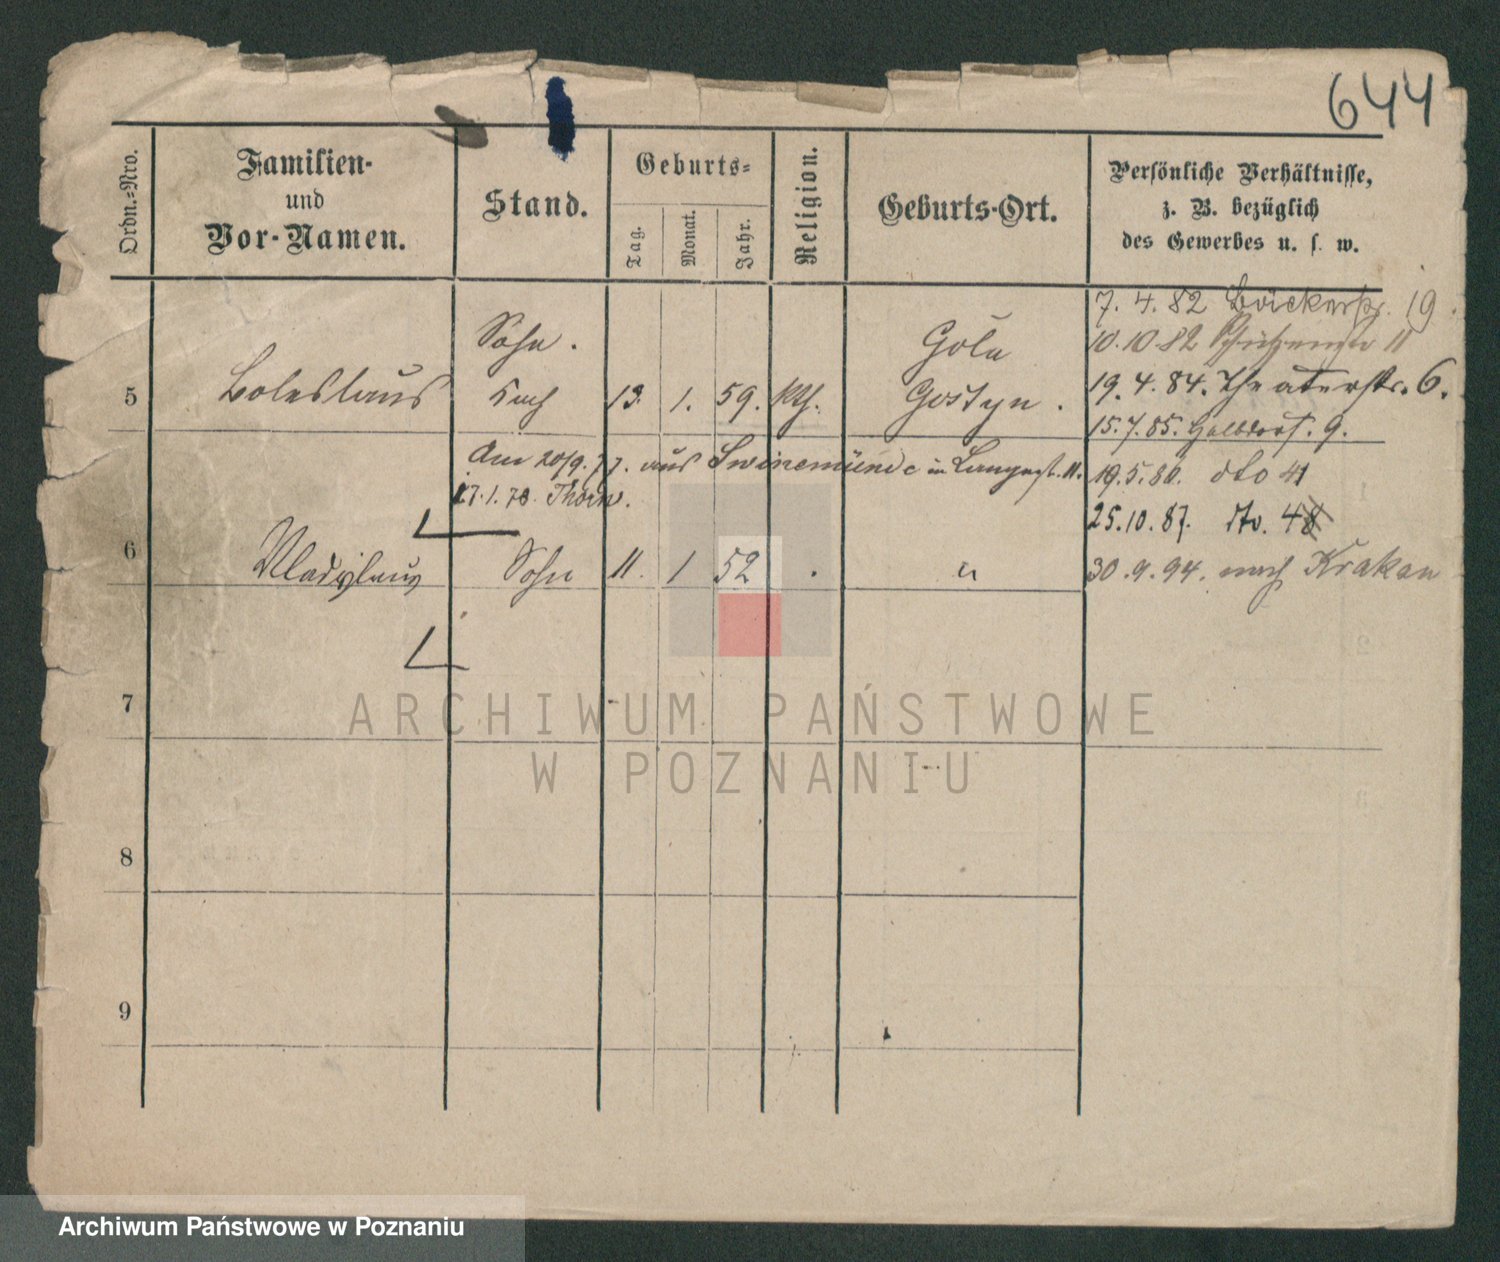 644
Ordn.-Nro.
Familien-
und
Vor-Namen.
Stand.
Geburts-
Tag.
Monat.
Jahr.
Religion.
Geburts-Ort.
Persönliche Verhältnisse,
z. B. bezüglich
des Gewerbes u. s. w.
7. 4. 82 19.
Sohn.
Gola
10.10.82 11
5 Boleslaus Koch 13. 1. 59. kth. Gostyn.
19. 4. 84. Theaterstr. 6.
15.7.85. Halbdorfst. 9.
Am 20/9.77. aus Swinemünde in Langest. 11.
19.5.86. dto 41
17.1.78. Thorn.
25.10.87. dto. 48
6 Wladyslaus Sohn 11. 1 52 . "
30.9.94. nach Krakau
7
8
9
ARCHIWUM PAŃSTWOWE
W POZNANIU
Archiwum Państwowe w Poznaniu